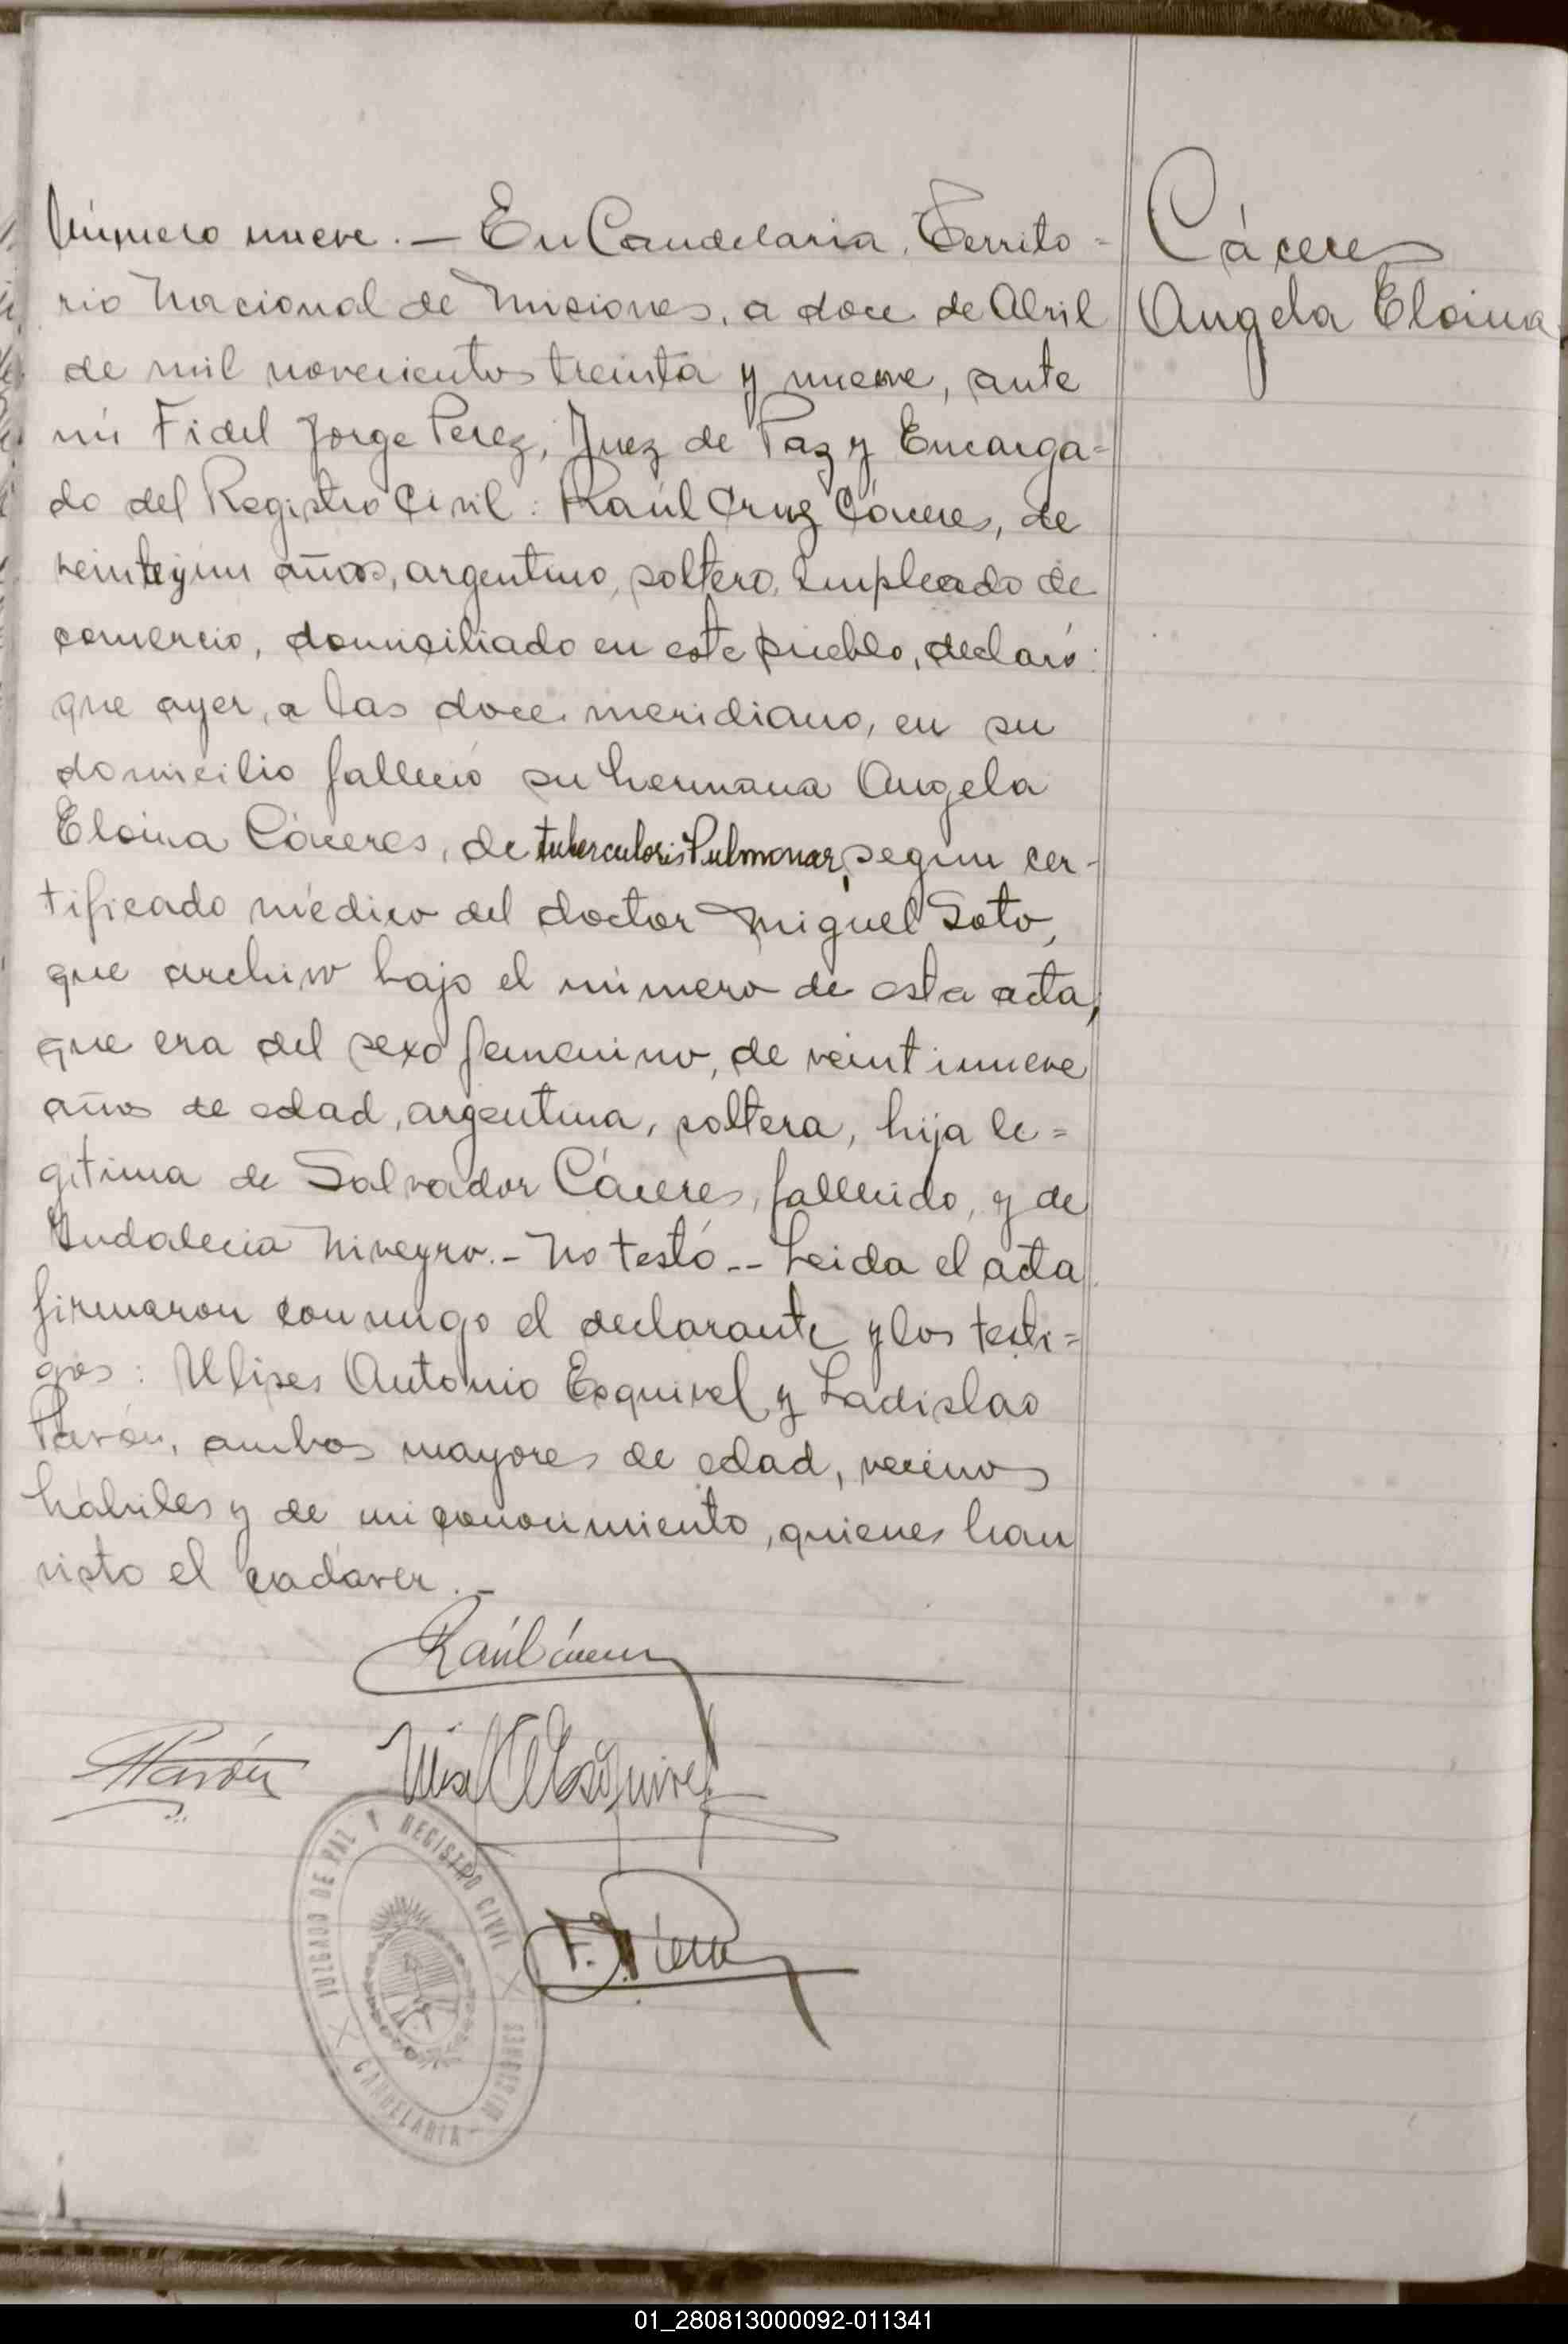 Número nueve. — En Candelaria, Territo=
rio Nacional de Misiones, a doce de Abril
de mil novecientos treinta y nueve, ante
mi Fidel Jorge Perez, Juez de Paz y Encarga=
do del Registro Civil: Raúl Cruz Cáceres, de
veinteyun años, argentino, soltero, empleado de
comercio, domiciliado en este pueblo, declaró:
que ayer, a las doce meridiano, en su
domicilio falleció su hermana Angela
Eloina Cáceres, de tuberculosis Pulmonar, segun cer-
tificado médico del doctor Miguel Soto,
que archivo bajo el número de esta acta;
que era del sexo femenino, de veintinueve
años de edad, argentina, soltera, hija le=
gitima de Salvador Cáceres, fallecido, y de
Indalecia Niveyro.- No testó.-- Leida el acta
firmaron conmigo el declarante y los testi=
gos: Ulises Antonio Esquivel y Ladislao
Pavón, ambos mayores de edad, vecinos
hábiles y de mi conocimiento, quienes han
visto el cadáver.-
Cáceres
Angela Eloina
Raúl Cáceres
Pavón
Ulises A Esquivel
F. J. Perez
JUZGADO DE PAZ Y REGISTRO CIVIL
CANDELARIA - MISIONES
01_280813000092-011341